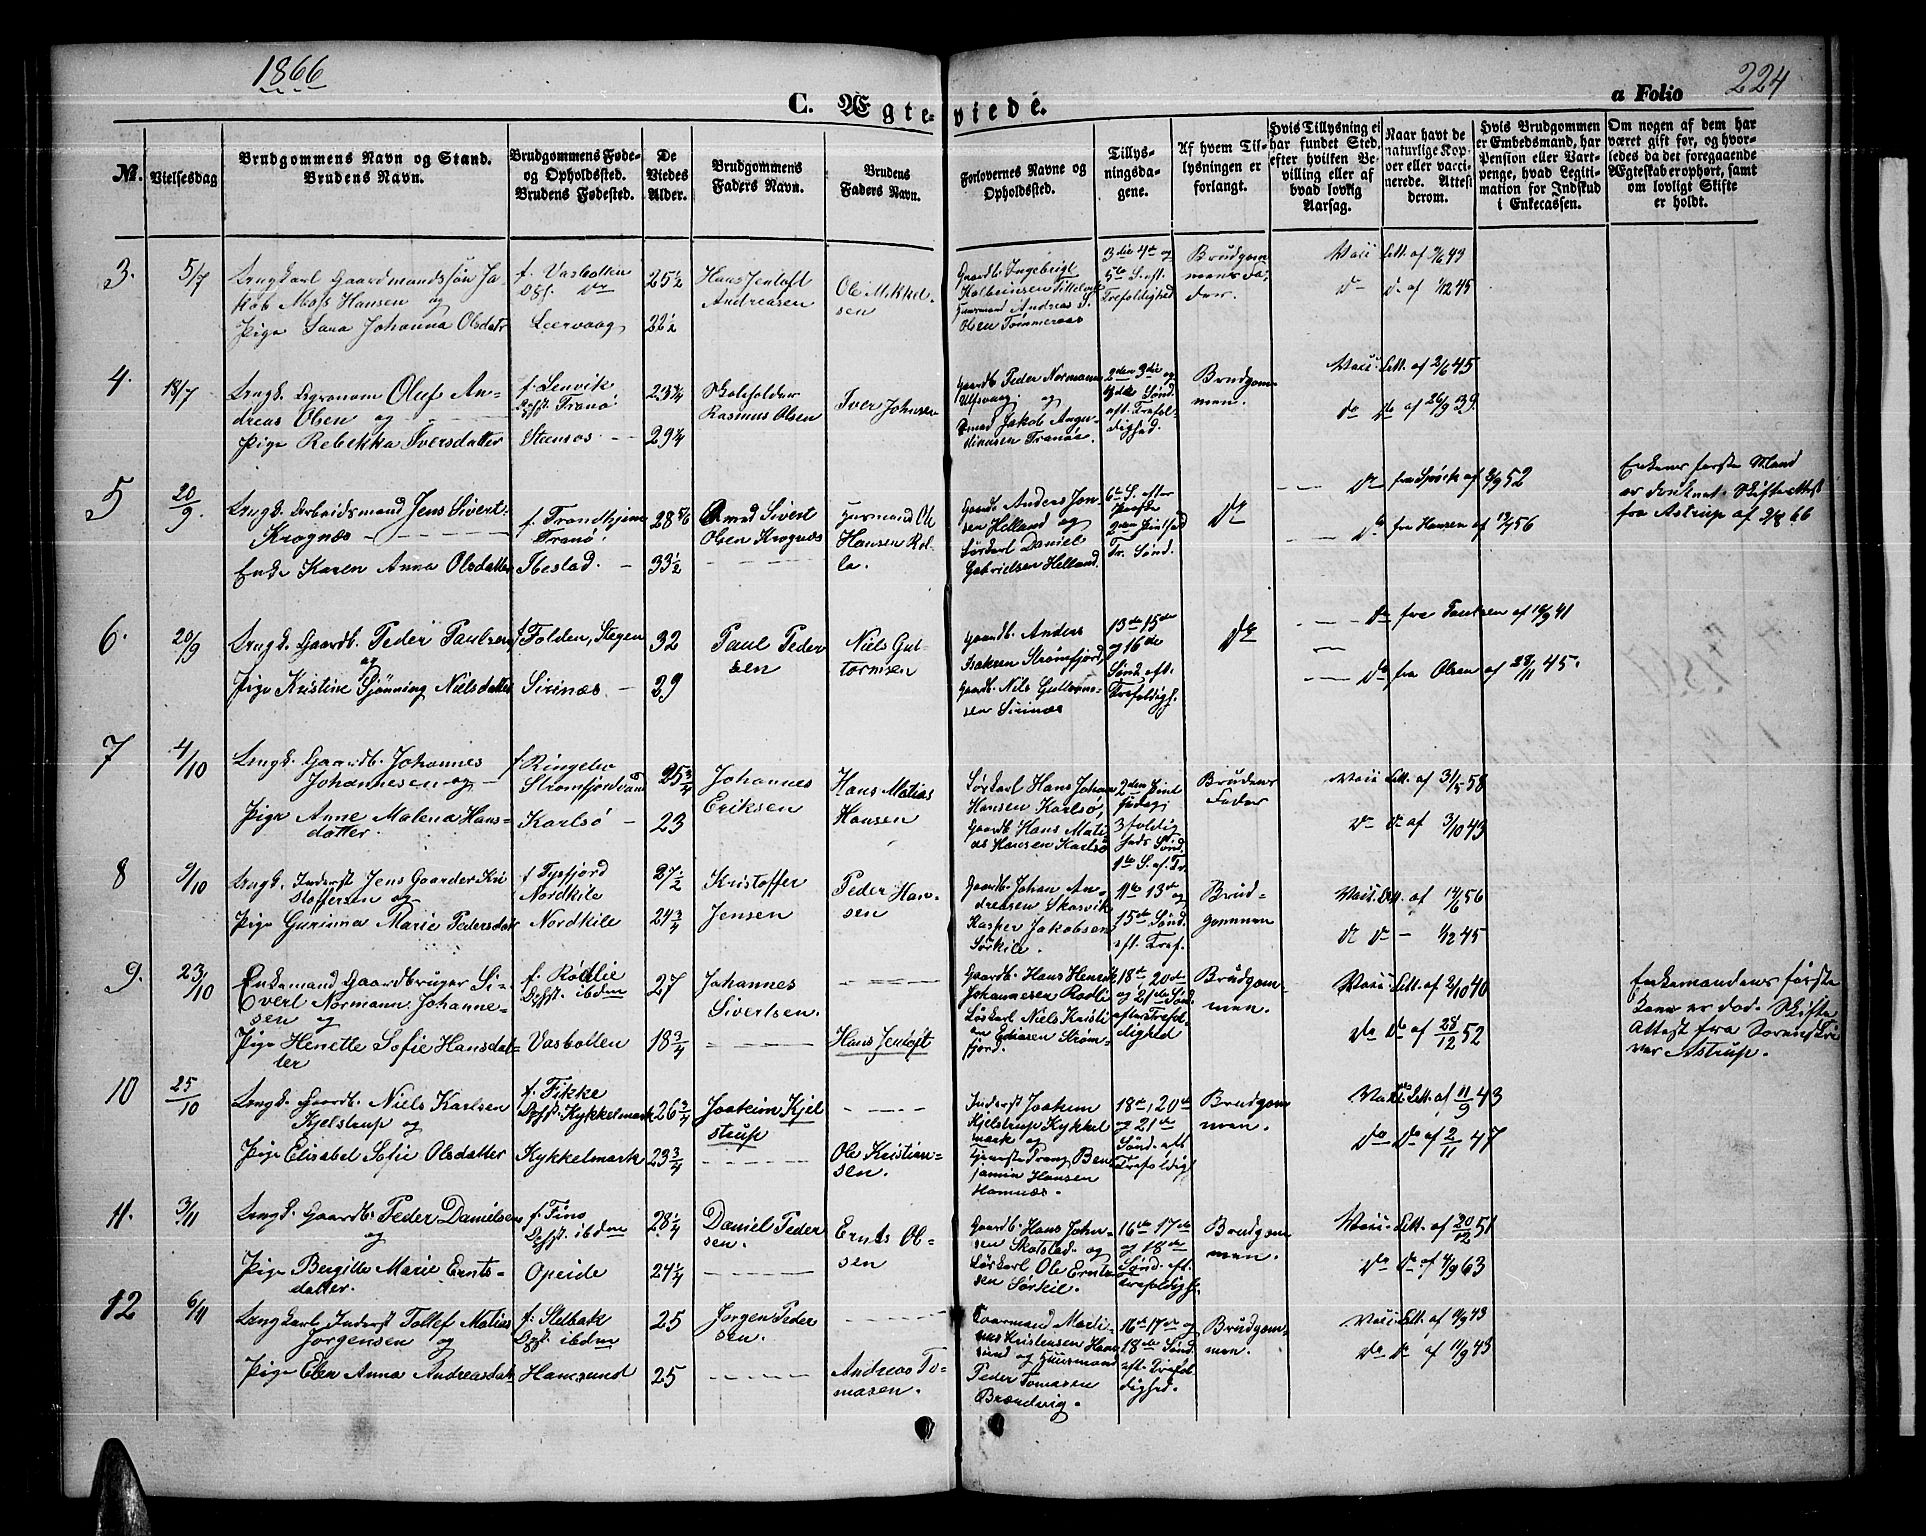 1866
C. Ægteviede.
a Folio 224
№.
Vielsesdag
Brudgommens Navn og Stand.
Brudens Navn.
Brudgommens Føde-
og Opholdssted.
Brudens Fødested.
De
Viedes
Alder.
Brudgommens
Faders Navn.
Brudens
Faders Navn.
Forlovernes Navne og
Opholdssted.
Tillys-
ningsda-
gene.
Af hvem Til-
lysningen er
forlangt.
Hvis Tillysning ei
har fundet Sted,
efter hvilken Be-
villing eller af
hvad lovlig
Aarsag.
Naar havt de
naturlige Kop-
per eller vacci-
nerede. Attest
derom.
Hvis Brudgommen
er Embedsmand, har
Pension eller Vart-
penge, hvad Legiti-
mation for Indskud
i Enkecassen.
Om nogen af dem har
været gift før, og hvor-
ledes da det foregaaende
Ægteskab er ophørt, samt
om lovligt Skifte
er holdt.
3. 5/7
Ungkarl Gaardmandssøn Ja-
kob Mass Hansen og
Pige Sara Johanna Olsdatr
f. Vasbotten
Opf. do
Leervaag
25½
22½
Hans Jentoft
Andreasen
Ole Mikkel-
sen
Gaardb. Ingebrigt
Kolbeinsen
Huusmand Andreas S.
Olsen Tømmeraas
3die 4de og
5te S. eft.
Trefoldighed
Brudgom-
mens Fa-
der.
Vacc. Att. af 2/6 43
do do af 1/12 45
4. 18/7
Ungk. Agronom Oluf An-
dreas Olsen og
Pige Rebekka Iversdatter
f. Lenvik
Opf. Tranø
Steensøs
23¾
29¼
Rasmus Olsen
Iver Johnsen
Gaardb. Peder Normann
Ulfsvaag og
Jakob Angu-
Tranøe.
2den 3die og
4de Sønd.
eft. Trefol-
dighed.
Brudgom-
men.
Vacc. Att. af 2/6 45
do do af 26/9 39.
5 20/9
Ungk. Arbeidsmand Jens Sivert
Krognæs
Enke Karen Anna Olsdatter
f. Trondhjem
Tranø
Ibestad.
28 5/6
33½
Sivert
Olsen Krognæs
Huusmand Ole
Hansen Rol-
la.
Gaardb. Anders Jon-
sen Helland og
Løskarl Daniel
Gabrielsen Helland.
6te S. efter
Paaske
2den Pintsed.
Tr. Sønd.
do
do fra af 2/9 52
do fra Hansen af 12/7 56
Enkens første Mand
er druknet. Skifteattest
fra Astrup af 2/8 66
6. 20/9
Ungk. Gaardb. Peder Paulsen
og
Pige Kristine Sjønning Nielsdatter
f. Folden, Stegen
Sirinæs
32
29
Paul Peder
sen
Niels Gut-
tormsen
Gaardb. Anders
Isaksen Strømfjord,
Gaardb. Nils Guttorm-
sen Sirinæs
13de 15de
og 16de
Sønd. eft.
Trefoldigh.
do
do fra Paulsen af 12/9 41
do fra Olsen af 28/11 45.
7 4/10
Ungk. Gaardb. Johannes
Johannesen og
Pige Anne Malena Hans-
datter.
f. Ringebu
Strømfjordvand
Karlsø
25¾
23
Johannes
Eriksen
Hans Matias
Hansen
Løskarl Hans Johan
Hansen Karlsø,
Gaardb. Hans Mati-
as Hansen Karlsø
2den Pind
sedag,
3foldig
heds Sønd.
1ste S. af. Tr.
Brudens
Fader
Vacc. Att. af 31/5 58
do do af 3/10 43
8 9/10
Ungk. Inderst Jens Gaarder Kri
stoffersen og
Pige Gurinna Marie Pedersdatr
f. Tysfjord
Nordkile
Nordkile
27½
24¾
Kristoffer
Jensen
Peder Han-
sen
Gaardb. Johan An-
dreesen Skarvik
Kasper Jakobsen
Sørkile.
11te 13de og
15de Sønd.
eft. Tref.
Brud-
gommen
Vacc. Att. af 14/6 56
do do – 1/12 45
9. 23/10
Enkemand Gaardbruger Si-
vert Normann Johanne-
sen og
Pige Henette Sofie Hansdat-
ter
f. Rødlie
Opf. ibdm
Vasbotten
27
18¾
Johannes
Sivertsen.
Hans Jentoft
Gaardb. Hans Henrik
Johannesen Rødli
Løskarl Niels Kristi
an Edisen Strøm-
fjord.
18de, 20de
og 21de Sønd.
efter Trefol-
dighed
Brudgom-
men.
Vacc. Att. af 2/10 40
do do af 28/12 52
Enkemandens første
Kone er død. Skifte
Attest fra Sorenskri
ver Astrup.
10 25/10
Ungk. Gaardb. Niels Karlsen
Kjelstrup og
Pige Elisabet Sofie Olsdatter
f. Fikke
Opf. Kykkelmark
Kykkelmark
26¾
23¾
Joakim Kjel
strup
Ole Kristian-
sen.
Inderst Joakim
Kjelstrup Kykkel
mark og
Tjenestedreng Ben-
jamin Hansen
Hamnæs.
18de, 20de
og 21de
Sønd. eft.
Trefoldigh.
Brudgom
men.
Vacc. Att. af 11/9 43
do do af 2/11 47
11. 3/11
Ungk. Gaardb. Peder Danielsen
og
Pige Bergitte Marie Ernts-
datter.
f. Finø
Opf. ibdm
Opeide
28¼
24¼
Daniel Peder
sen.
Ernts Ol-
sen
Gaardb. Hans John-
sen Skotstad og
Løskarl Ole Ernt-
sen Sørkil.
16de 17de
og 18de
Sønd. eft.
Trefoldigh.
Brudgom
men.
Vacc. Att. af 20/12 51
do do af 4/9 63
12 6/11
Ungkarl Inderst Tollef Matias
Jørgensen og
Pige Elen Anna Andreasdatr
f. Stelbak
Opf. ibdm
Hamsund
25
25
Jørgen Peder
sen.
Andreas To-
masen.
Gaarmand Marti-
nus Kristensen Ham
sund og Huusmand
Peder Tomasen
Brændvig.
16de 17de og
18de Sønd.
eft. Trefol
dighed.
Brudgom-
men.
Vacc. Att. af 11/9 43
do do af 11/9 43